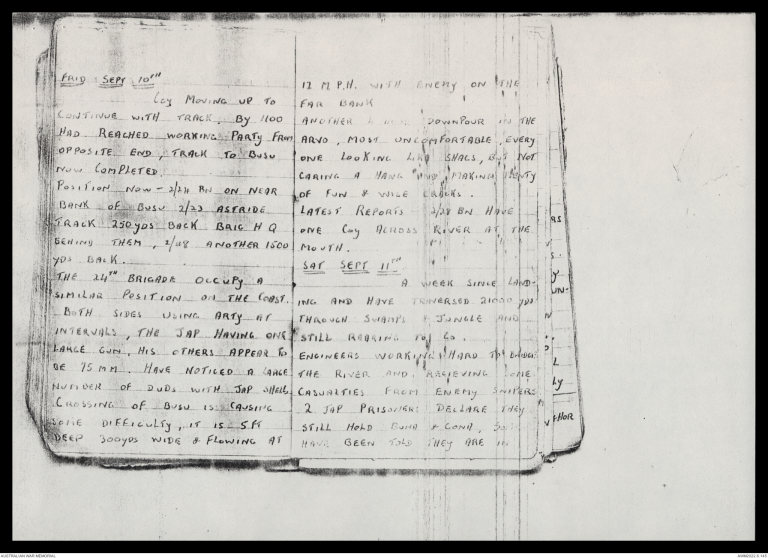 FRID SEPT 10TH
Coy MOVING UP TO
CONTINUE WITH TRACK. By 1100
HAD REACHED WORKING PARTY FROM
OPPOSITE END, TRACK TO BUSU
NOW COMPLETED.
POSITION NOW - 2/24 BN ON NEAR
BANK OF BUSU 2/23 ASTRIDE
TRACK 250 YDS BACK BRIG HQ
BEHIND THEM, 2/48 ANOTHER 1500
YDS BACK.
THE 24TH BRIGADE OCCUPY A
SIMILAR POSITION ON THE COAST.
BOTH SIDES USING ARTY AT
INTERVALS, THE JAP HAVING ONE
LARGE GUN, HIS OTHERS APPEAR TO
BE 75 MM. HAVE NOTICED A LARGE
NUMBER OF DUDS WITH JAP SHELL.
CROSSING OF BUSU IS CAUSING
SOME DIFFICULTY, IT IS 5 FT
DEEP 300 YDS WIDE & FLOWING AT
12 M.P.H. WITH ENEMY ON THE
FAR BANK
ANOTHER DOWNPOUR IN THE
ARVO, MOST UNCOMFORTABLE, EVERY
ONE LOOKING LIKE SHAGS, BUT NOT
CARING A HANG AND MAKING PLENTY
OF FUN & WISE CRACKS.
LATEST REPORTS 2/28 BN HAVE
ONE Coy ACROSS RIVER AT THE
MOUTH.
SAT SEPT 11TH
A WEEK SINCE LAND-
ING AND HAVE TRAVERSED 21000 YDS
THROUGH SWAMPS & JUNGLE AND
STILL REARING TO GO.
ENGINEERS WORKING HARD TO BRIDGE
THE RIVER AND RECIEVING SOME
CASUALTIES FROM ENEMY SNIPERS
2 JAP PRISONERS DECLARE THEY
STILL HOLD BUNA & GONA,
HAVE BEEN TOLD THEY ARE IN
AUSTRALIAN WAR MEMORIAL